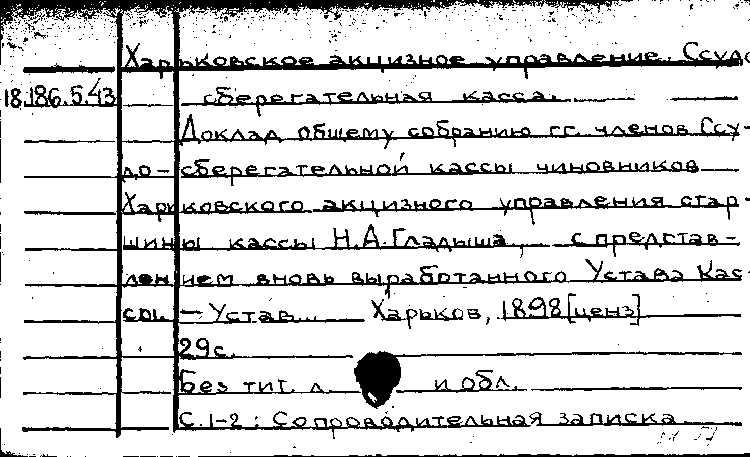 Харьковское акцизное управление. Ссудо
18.186.5.43 сберегательная касса.
Доклад общему собранию гг. членов Ссу-
до-сберегательной кассы чиновников
Харьковского акцизного управления стар-
шины кассы Н.А.Гладыша, с представ-
лением вновь выработанного Устава Кас-
сы. — Устав... Харьков, 1898 [ценз]
29с.
Без тит. л. и обл.
С.1-2: Сопроводительная записка